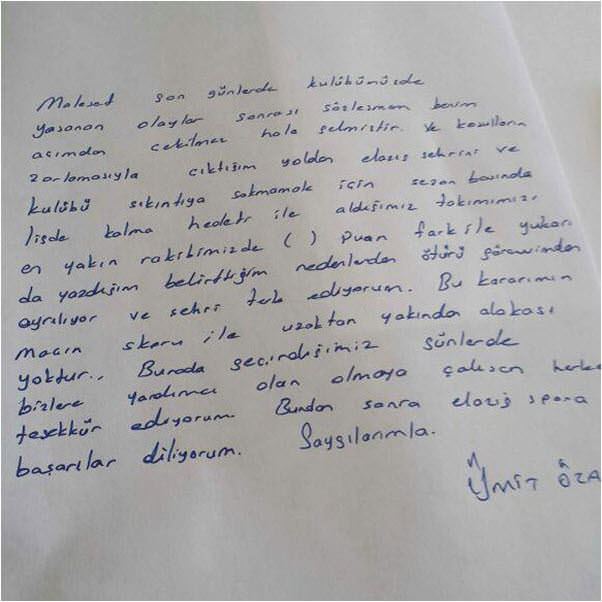 Malesef son günlerde kulübümüzde
yaşanan olaylar sonrası sözleşmem benim
açımdan çekilmez hale gelmiştir. ve koşulların
zorlamasıyla çıktığım yoldan elazığ şehrini ve
kulübü sıkıntıya sokmamak için sezon başında
ligde kalma hedefi ile aldığımız takımımızı
en yakın rakibimizde ( ) Puan fark ile yukarı
da yazdığım belirttiğim nedenlerden ötürü görevimden
ayrılıyor ve şehri terk ediyorum. Bu kararımın
maçın skoru ile uzaktan yakından alakası
yoktur.. Burada geçirdiğimiz günlerde
bizlere yardımcı olan olmaya çalışan herke
teşekkür ediyorum. Bundan sonra elazığ spora
başarılar diliyorum. Saygılarımla.
Ümit ÖZA